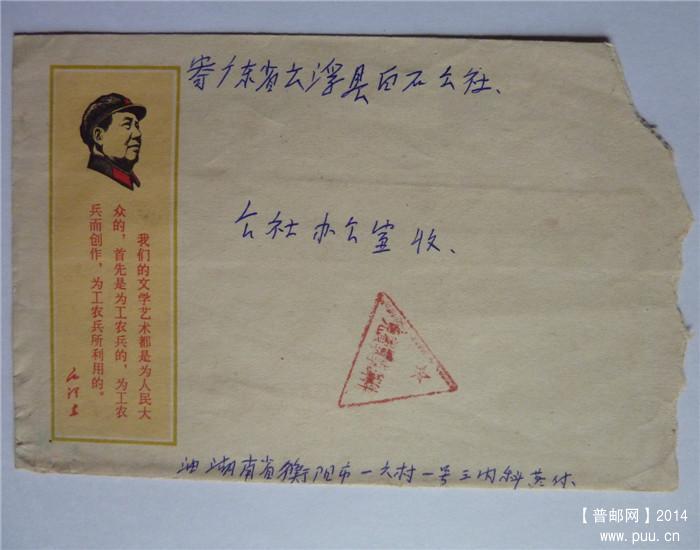 寄广东省云浮县白石公社、
公社办公室收、
我们的文学艺术都是为人民大
众的，首先是为工农兵的，为工农
兵而创作，为工农兵所利用的。
毛泽东
湖南省衡阳市一六村一号三内科
【普邮网】2014
www.puu.cn